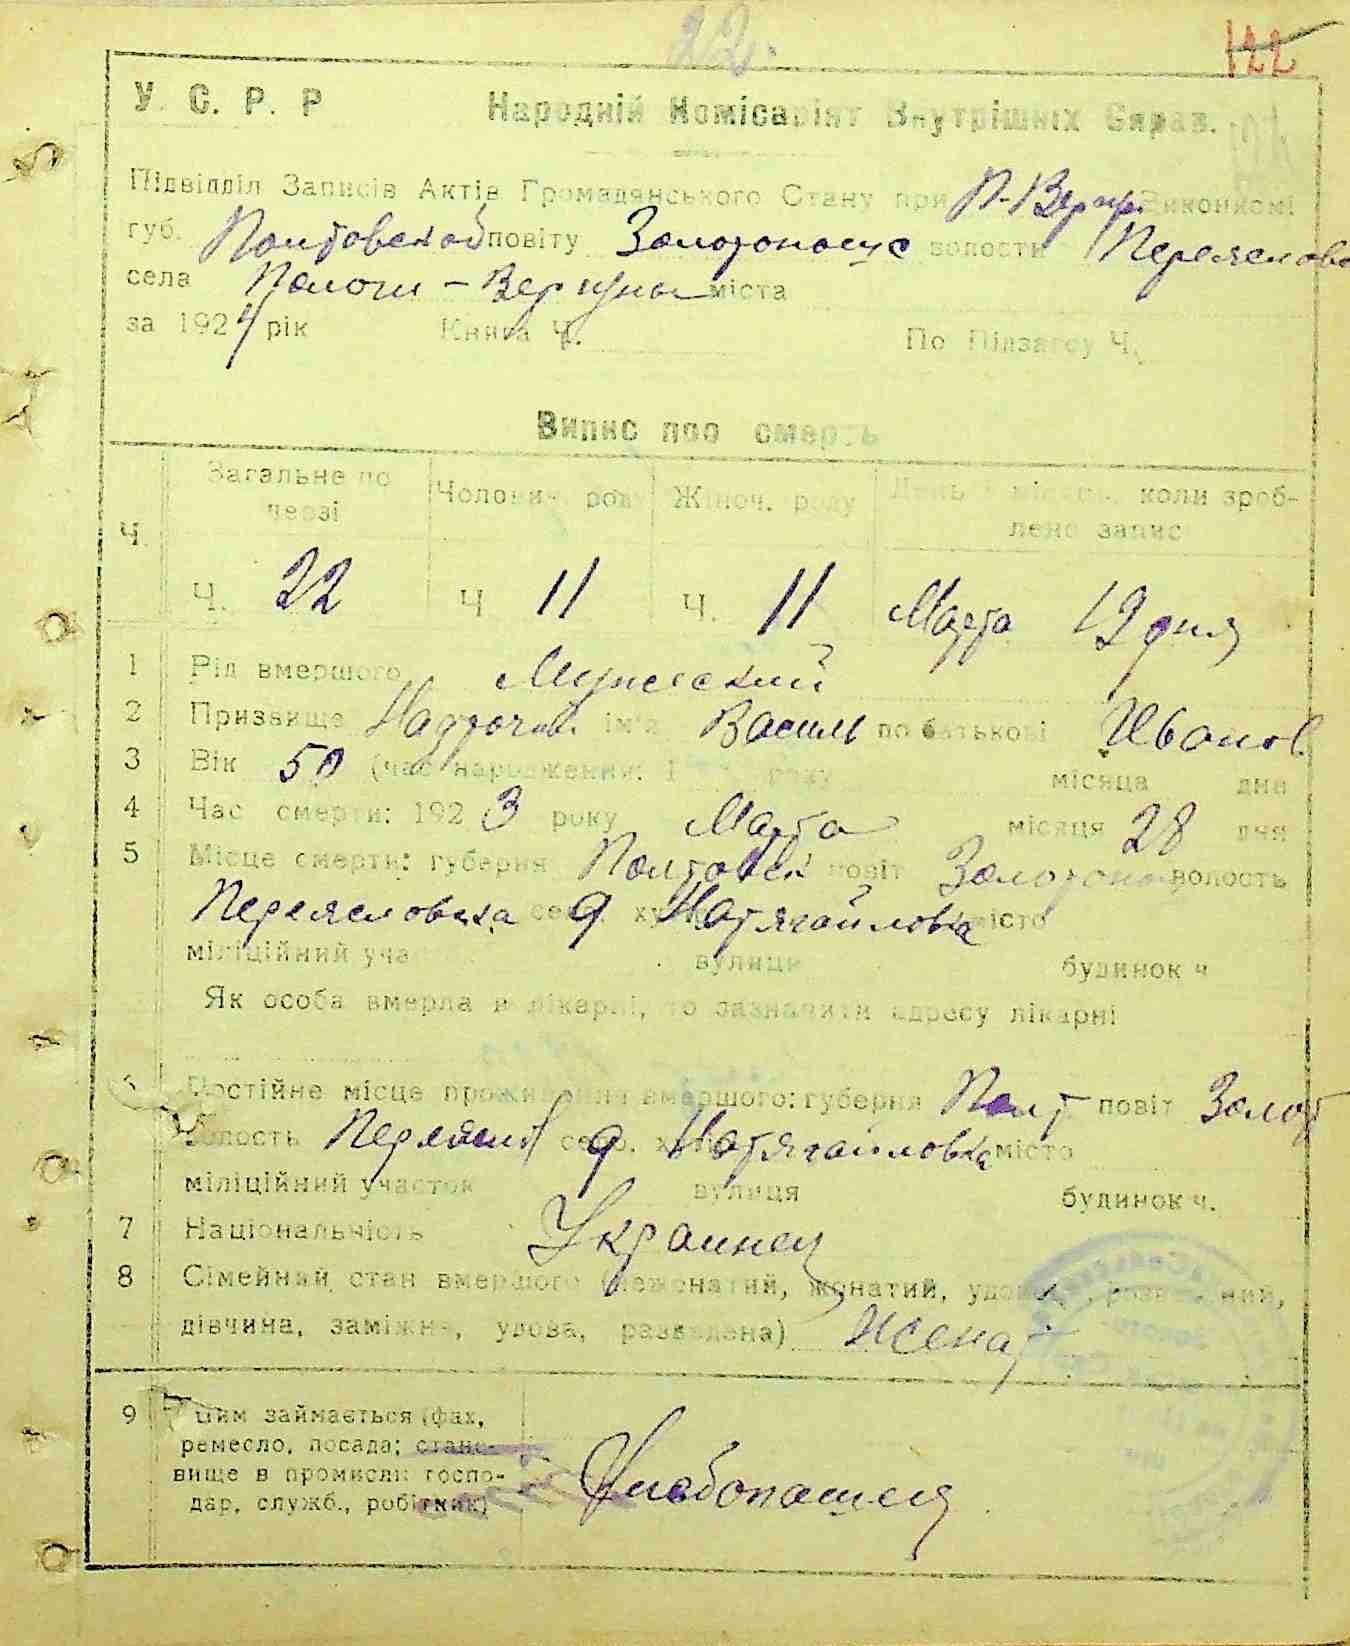 22.
122
У. С. Р. Р Народній Комісаріят Внутрішніх Справ.
Підвідділ Записів Актів Громадянського Стану при П-Верг. Виконкомі
губ. Полтовской повіту Золотоноще волости Переяслово
села Пологи - Вергуны міста
за 1924 рік Книга Ч. По Підзагсу Ч.
Випис про смерть
Ч. Загальне по черзі Чоловіч. роду Жіноч. роду День і місяць, коли зроблено запис
Ч. 22 Ч 11 Ч. 11 Марта 12 дня
1 Рід вмершого Мужеский
2 Призвище ім'я Васил по батькові Иванов.
3 Вік 50 (час народження: 1 року місяца дня
4 Час смерти: 1923 року Марта місяця 28 дня
5 Місце смерти: губерня Полтовск повіт Золотонош волость
Переясловска село, ху д Натягайловка місто
міліційний учас вулиця будинок ч
Як особа вмерла в лікарні, то зазначити адресу лікарні
6 Постійне місце проживання вмершого: губерня Полт повіт Золот
волость Переяслов село, х д Натягайловка місто
міліційний участок вулиця будинок ч.
7 Національність Украинец
8 Сімейний стан вмершого (нежонатий, жонатий, удовец, розведений,
дівчина, заміжня, удова, разведена) Женат
9 Чим займається (фах,
ремесло, посада; стано-
вище в промислі: госпо-
дар, служб., робітник)
Хлебопашец